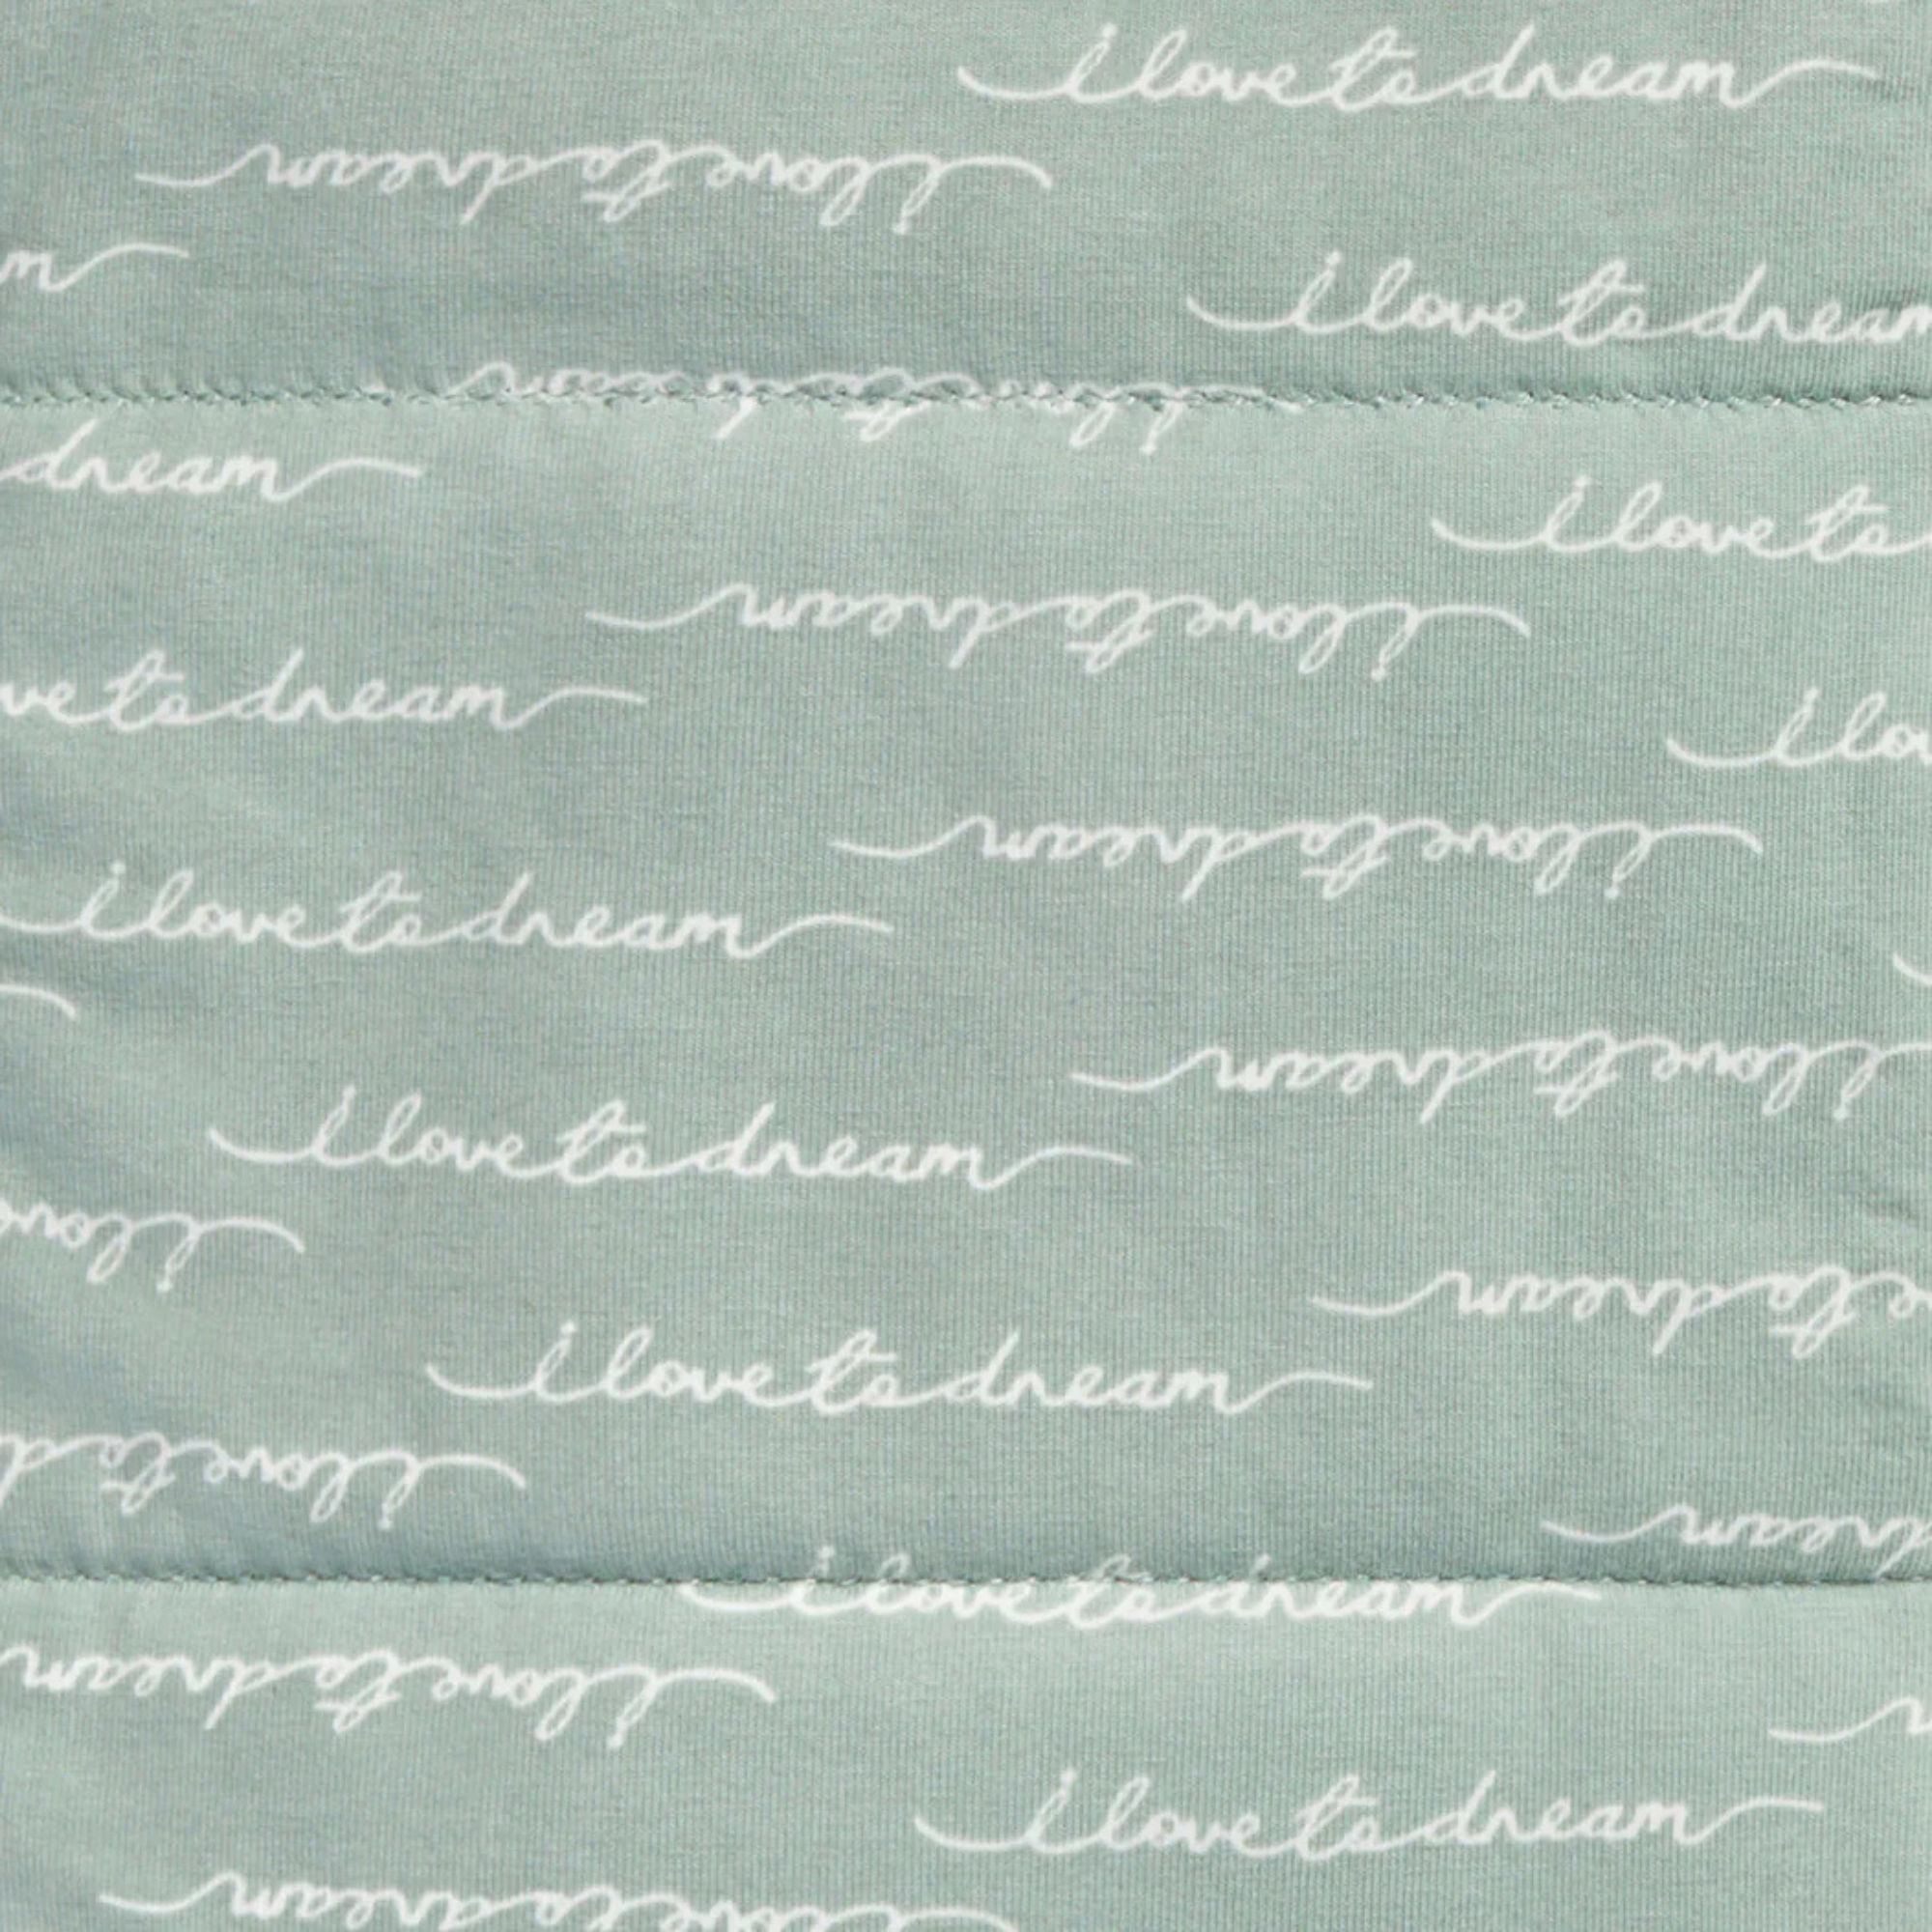 i love to dream
i love to dream
m
i love to dream
i love to dream
dream
i love to
i love to dream
ve to dream
i lov
i love to dream
i love to dream
i love to dream
i love to dream
i love
e to dream
i love to dream
i love to d
dream
i love to dream
i love to dream
i love to dream
i love to dream